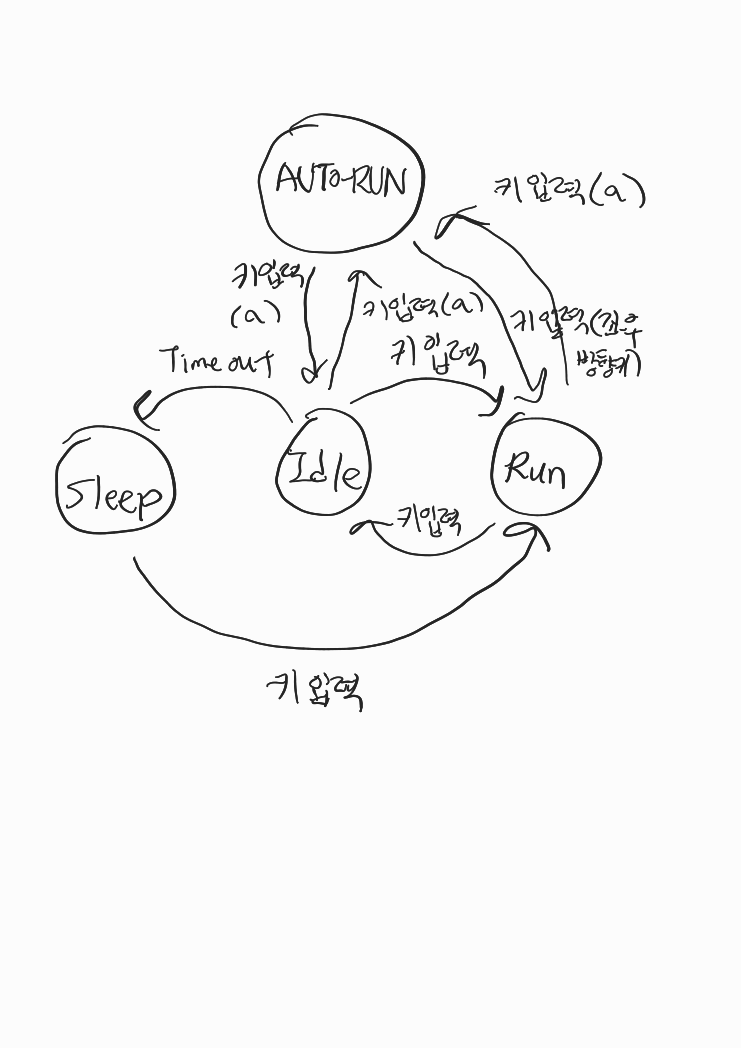 AUTO-RUN
키입력(a)
키입력
(a)
키입력(a)
키입력(좌우
방향키)
Time out
키입력
Sleep
Idle
Run
키입력
키입력